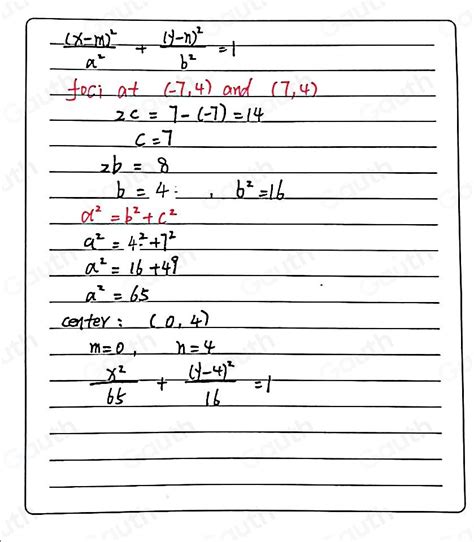 (x-m)²/a² + (y-n)²/b² = 1
foci at (-7,4) and (7,4)
2c = 7-(-7) = 14
c = 7
2b = 8
b = 4 , b² = 16
a² = b² + c²
a² = 4² + 7²
a² = 16 + 49
a² = 65
center: (0,4)
m=0, n=4
x²/65 + (y-4)²/16 = 1
Gauth